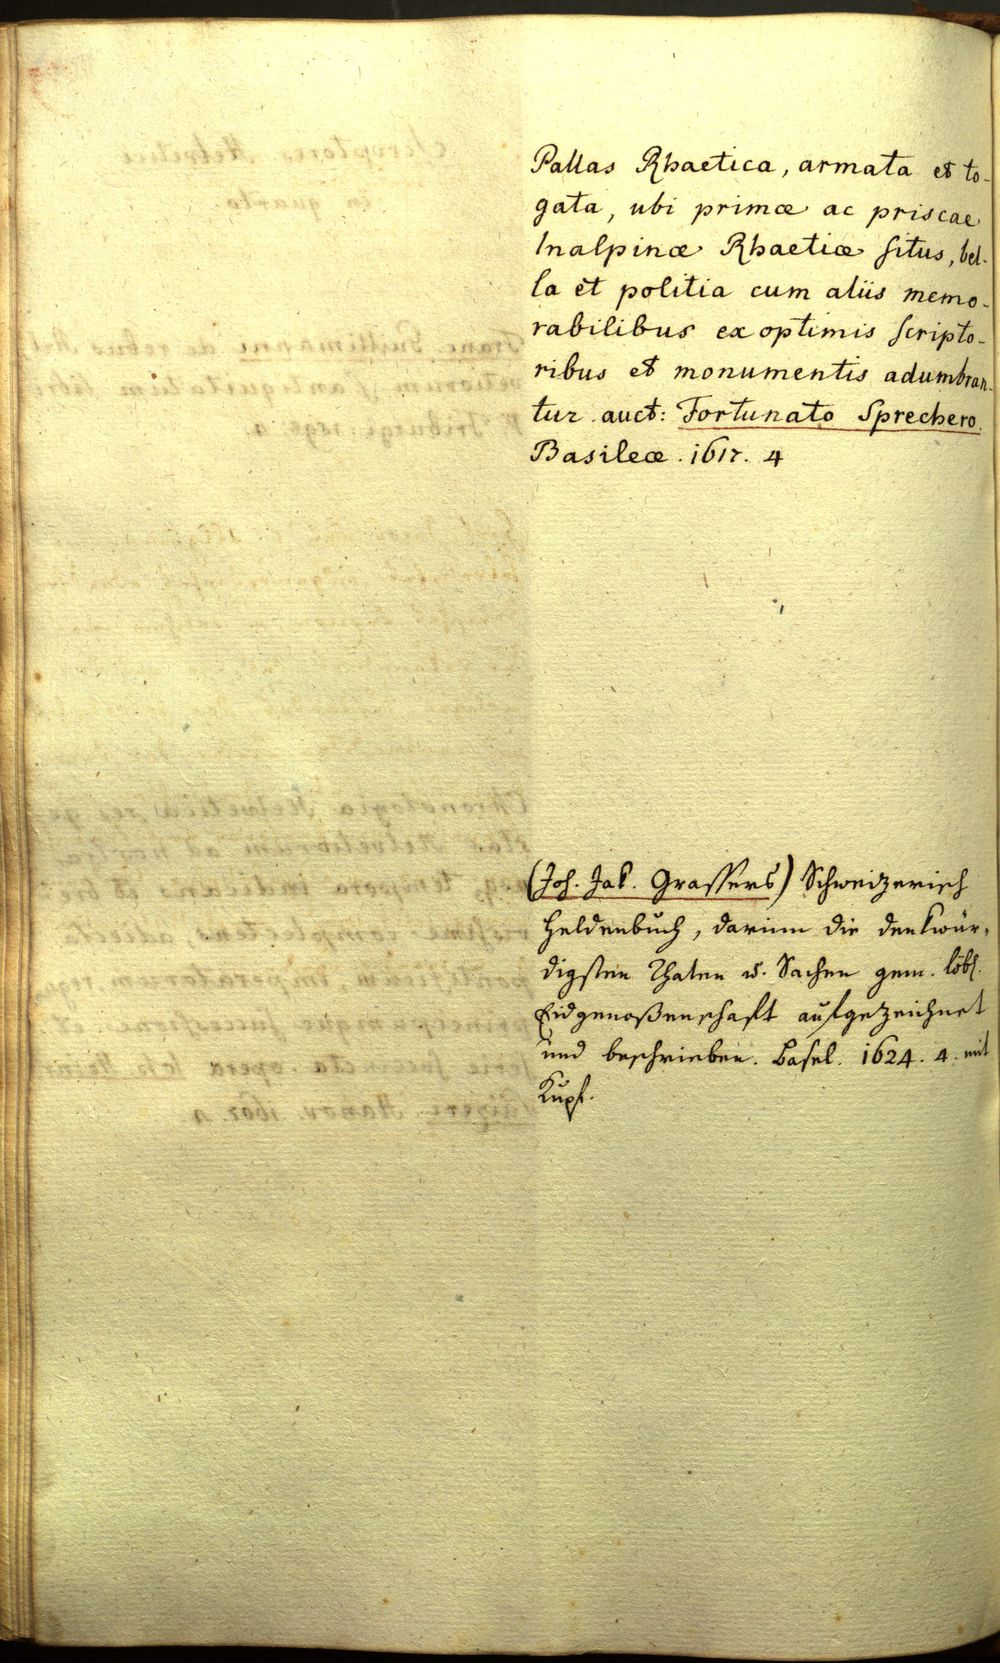 Pallas Rhaetica, armata et to-
gata, ubi primæ ac priscae
Inalpinæ Rhaetiæ situs, bel-
la et politia cum aliis memo-
rabilibus ex optimis scripto-
ribus et monumentis adumbran-
tur. auct: Fortunato Sprechero.
Basileæ. 1617. 4
(Joh. Jak. Grassers) Schweizerisch
Heldenbuch, darinn die denkwür-
digsten Thaten u. Sachen gem. löbl.
Eidgenoßenschaft aufgezeichnet
und beschrieben. Basel. 1624. 4. mit
Kupf.